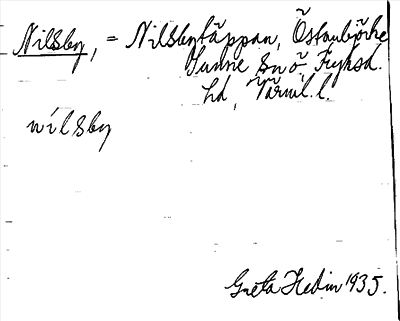 Nilsby, = Nilsbytäppan, Östanbjörke
Sunne sn ö, Fryksd.
hd, Värml. l.
nilsby
Greta Hedin 1935.